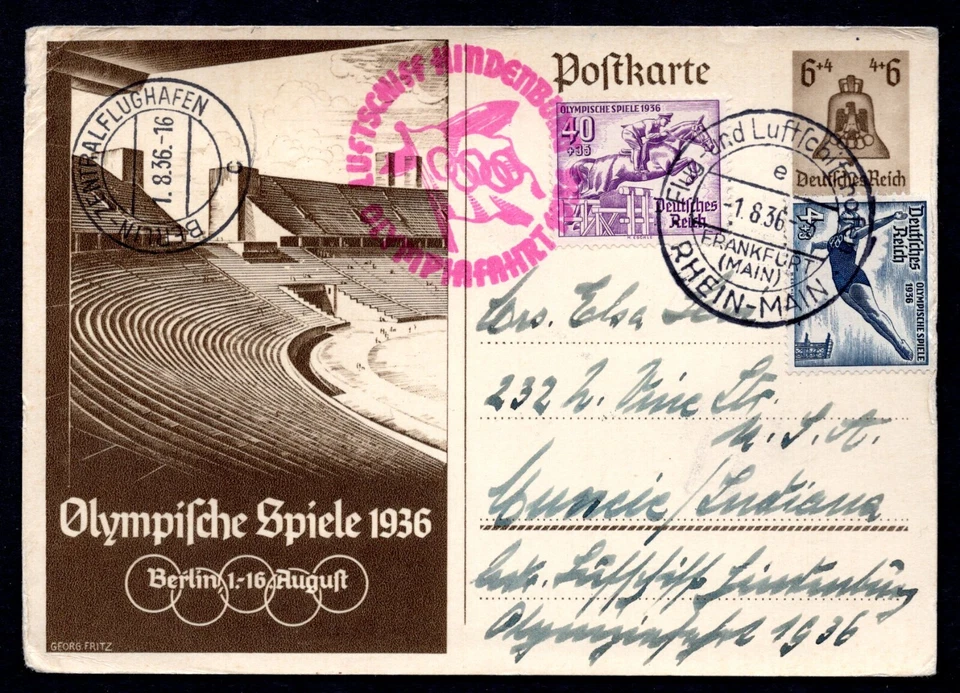 Olympische Spiele 1936
Berlin 1.-16 August
GEORG FRITZ
BERLIN ZENTRALFLUGHAFEN
1.8.36.-16
c
LUFTSCHIFF HINDENBURG
OLYMPIAFAHRT 1936
Postkarte
6+4 4+6
Deutsches Reich
OLYMPISCHE SPIELE 1936
40
+35
Deutsches
Reich
Flug- und Luftschiffhafen
e
-1.8.36.
FRANKFURT
(MAIN)
RHEIN-MAIN
Deutsches
Reich
OLYMPISCHE SPIELE
1936
Mrs. Elsa
232 N. Vine Str.
U. S. A.
Muncie / Indiana
Luftschiff Hindenburg
Olympiafahrt 1936